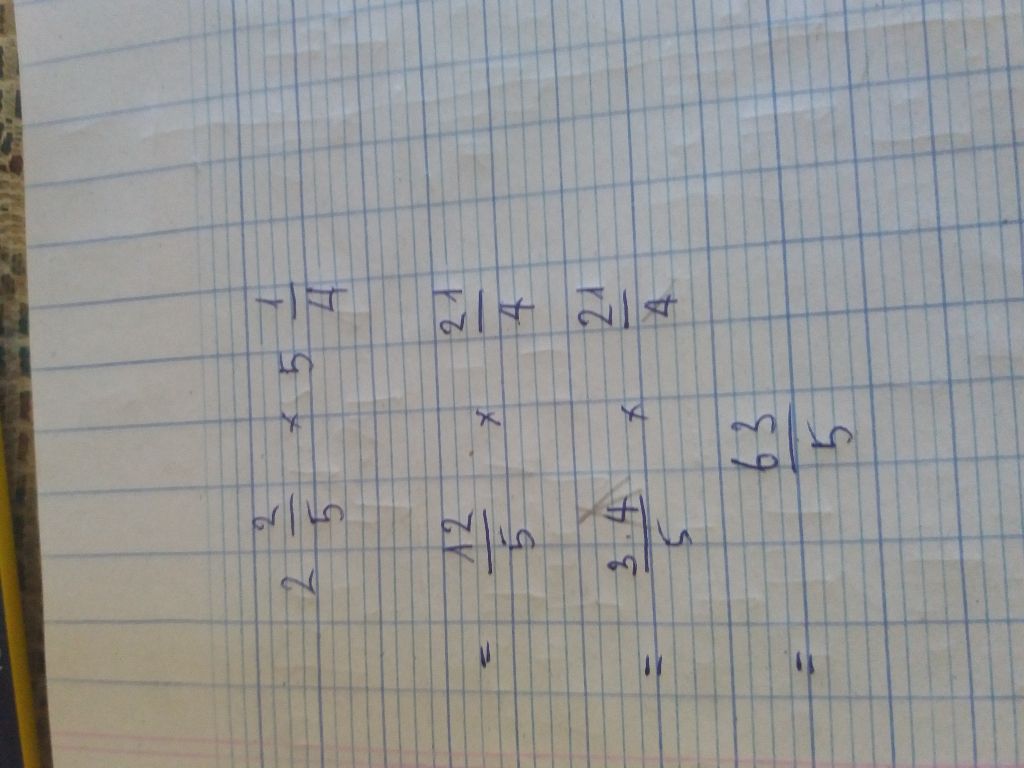 2 2/5 × 5 1/4
= 12/5 × 21/4
= 3.4/5 × 21/4
= 63/5